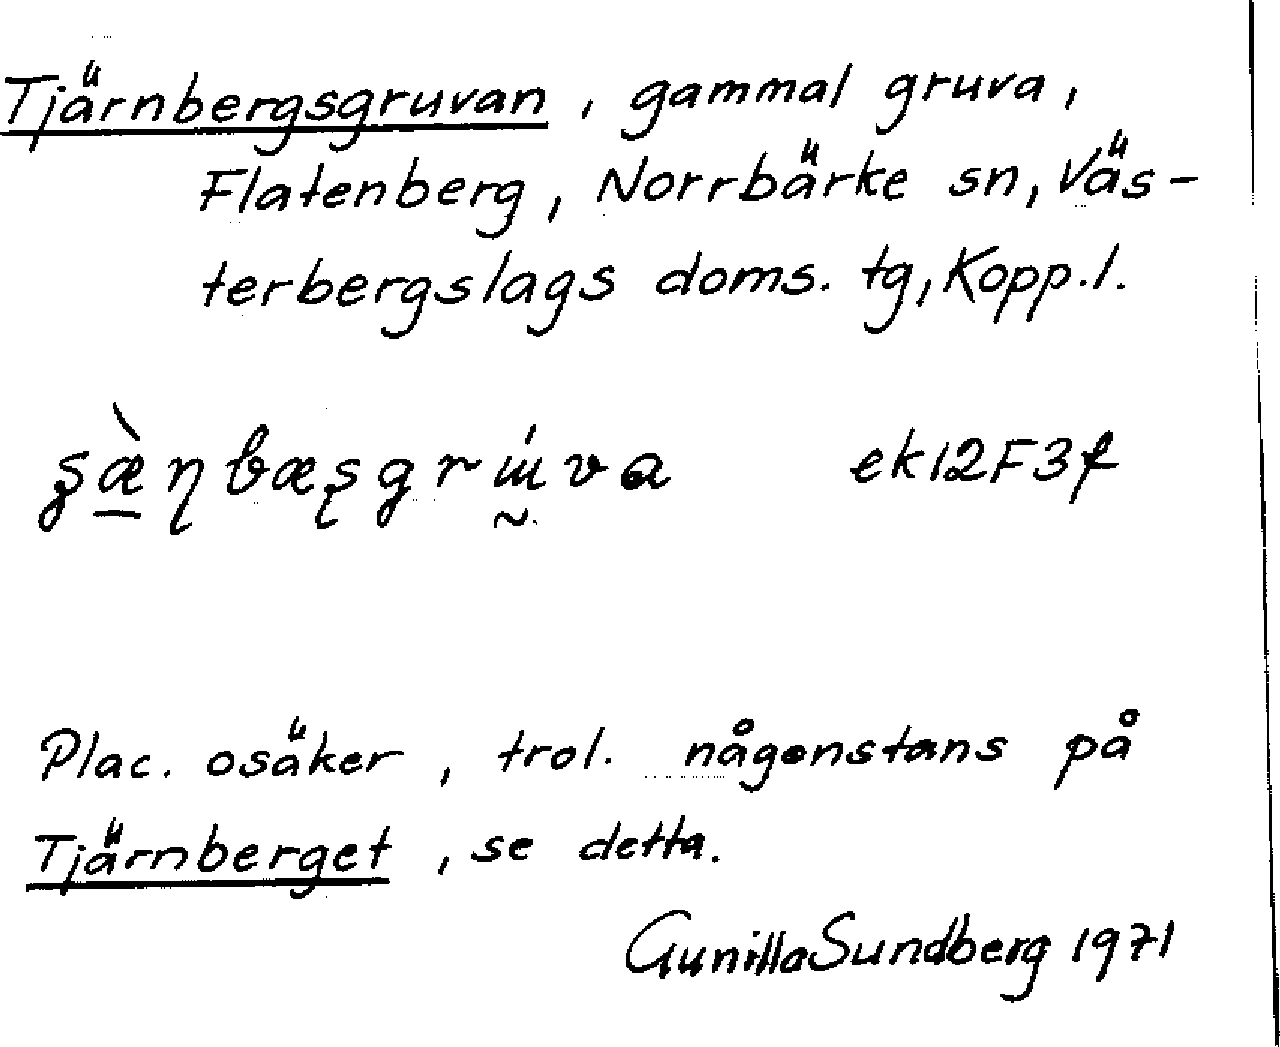 Tjärnbergsgruvan, gammal gruva,
Flatenberg, Norrbärke sn, Väs-
terbergslags doms. tg, Kopp.l.
ek12F3f
Plac. osäker, trol. någonstans på
Tjärnberget, se detta.
Gunilla Sundberg 1971